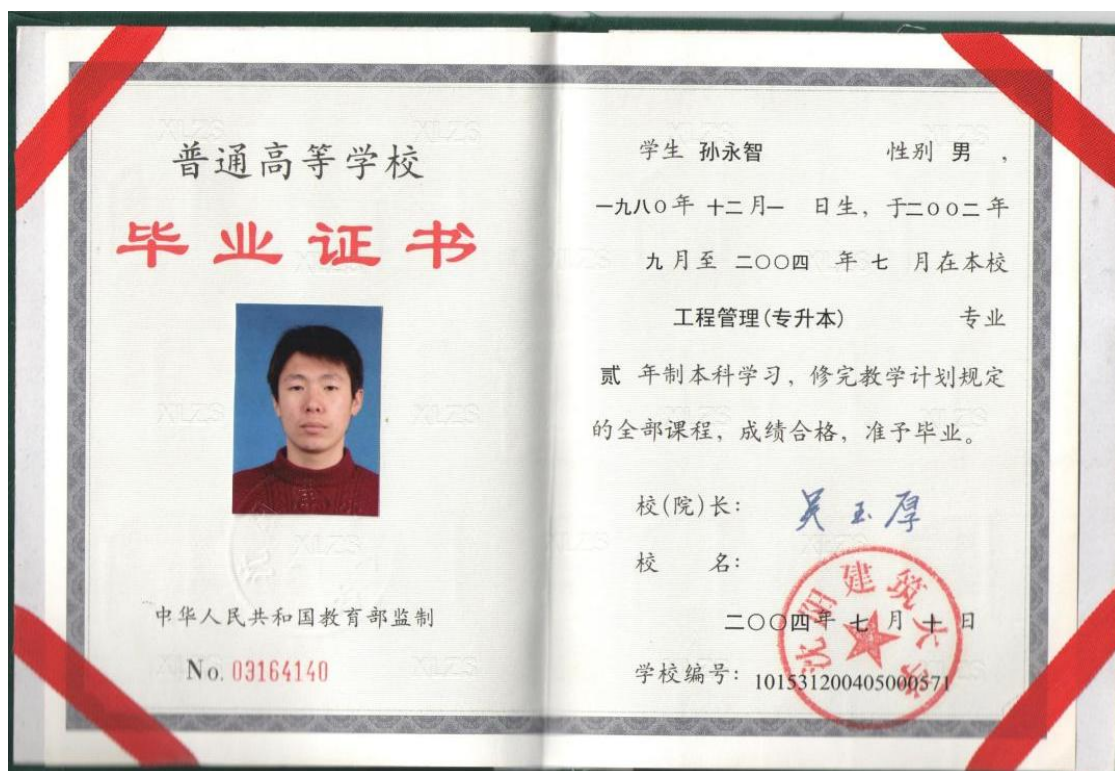 普通高等学校
毕业证书
中华人民共和国教育部监制
No. 03164140
学生 孙永智 性别 男 ,
一九八〇年 十二月一 日生, 于二〇〇二年
九月至 二〇〇四 年 七 月在本校
工程管理(专升本) 专业
贰 年制本科学习, 修完教学计划规定
的全部课程, 成绩合格, 准予毕业。
校(院)长: 吴玉厚
校 名:
沈阳建筑大学
二〇〇四年 七 月 十 日
学校编号: 101531200405000571
XLZS
XLZS
XLZS
XLZS
XLZS
XLZS